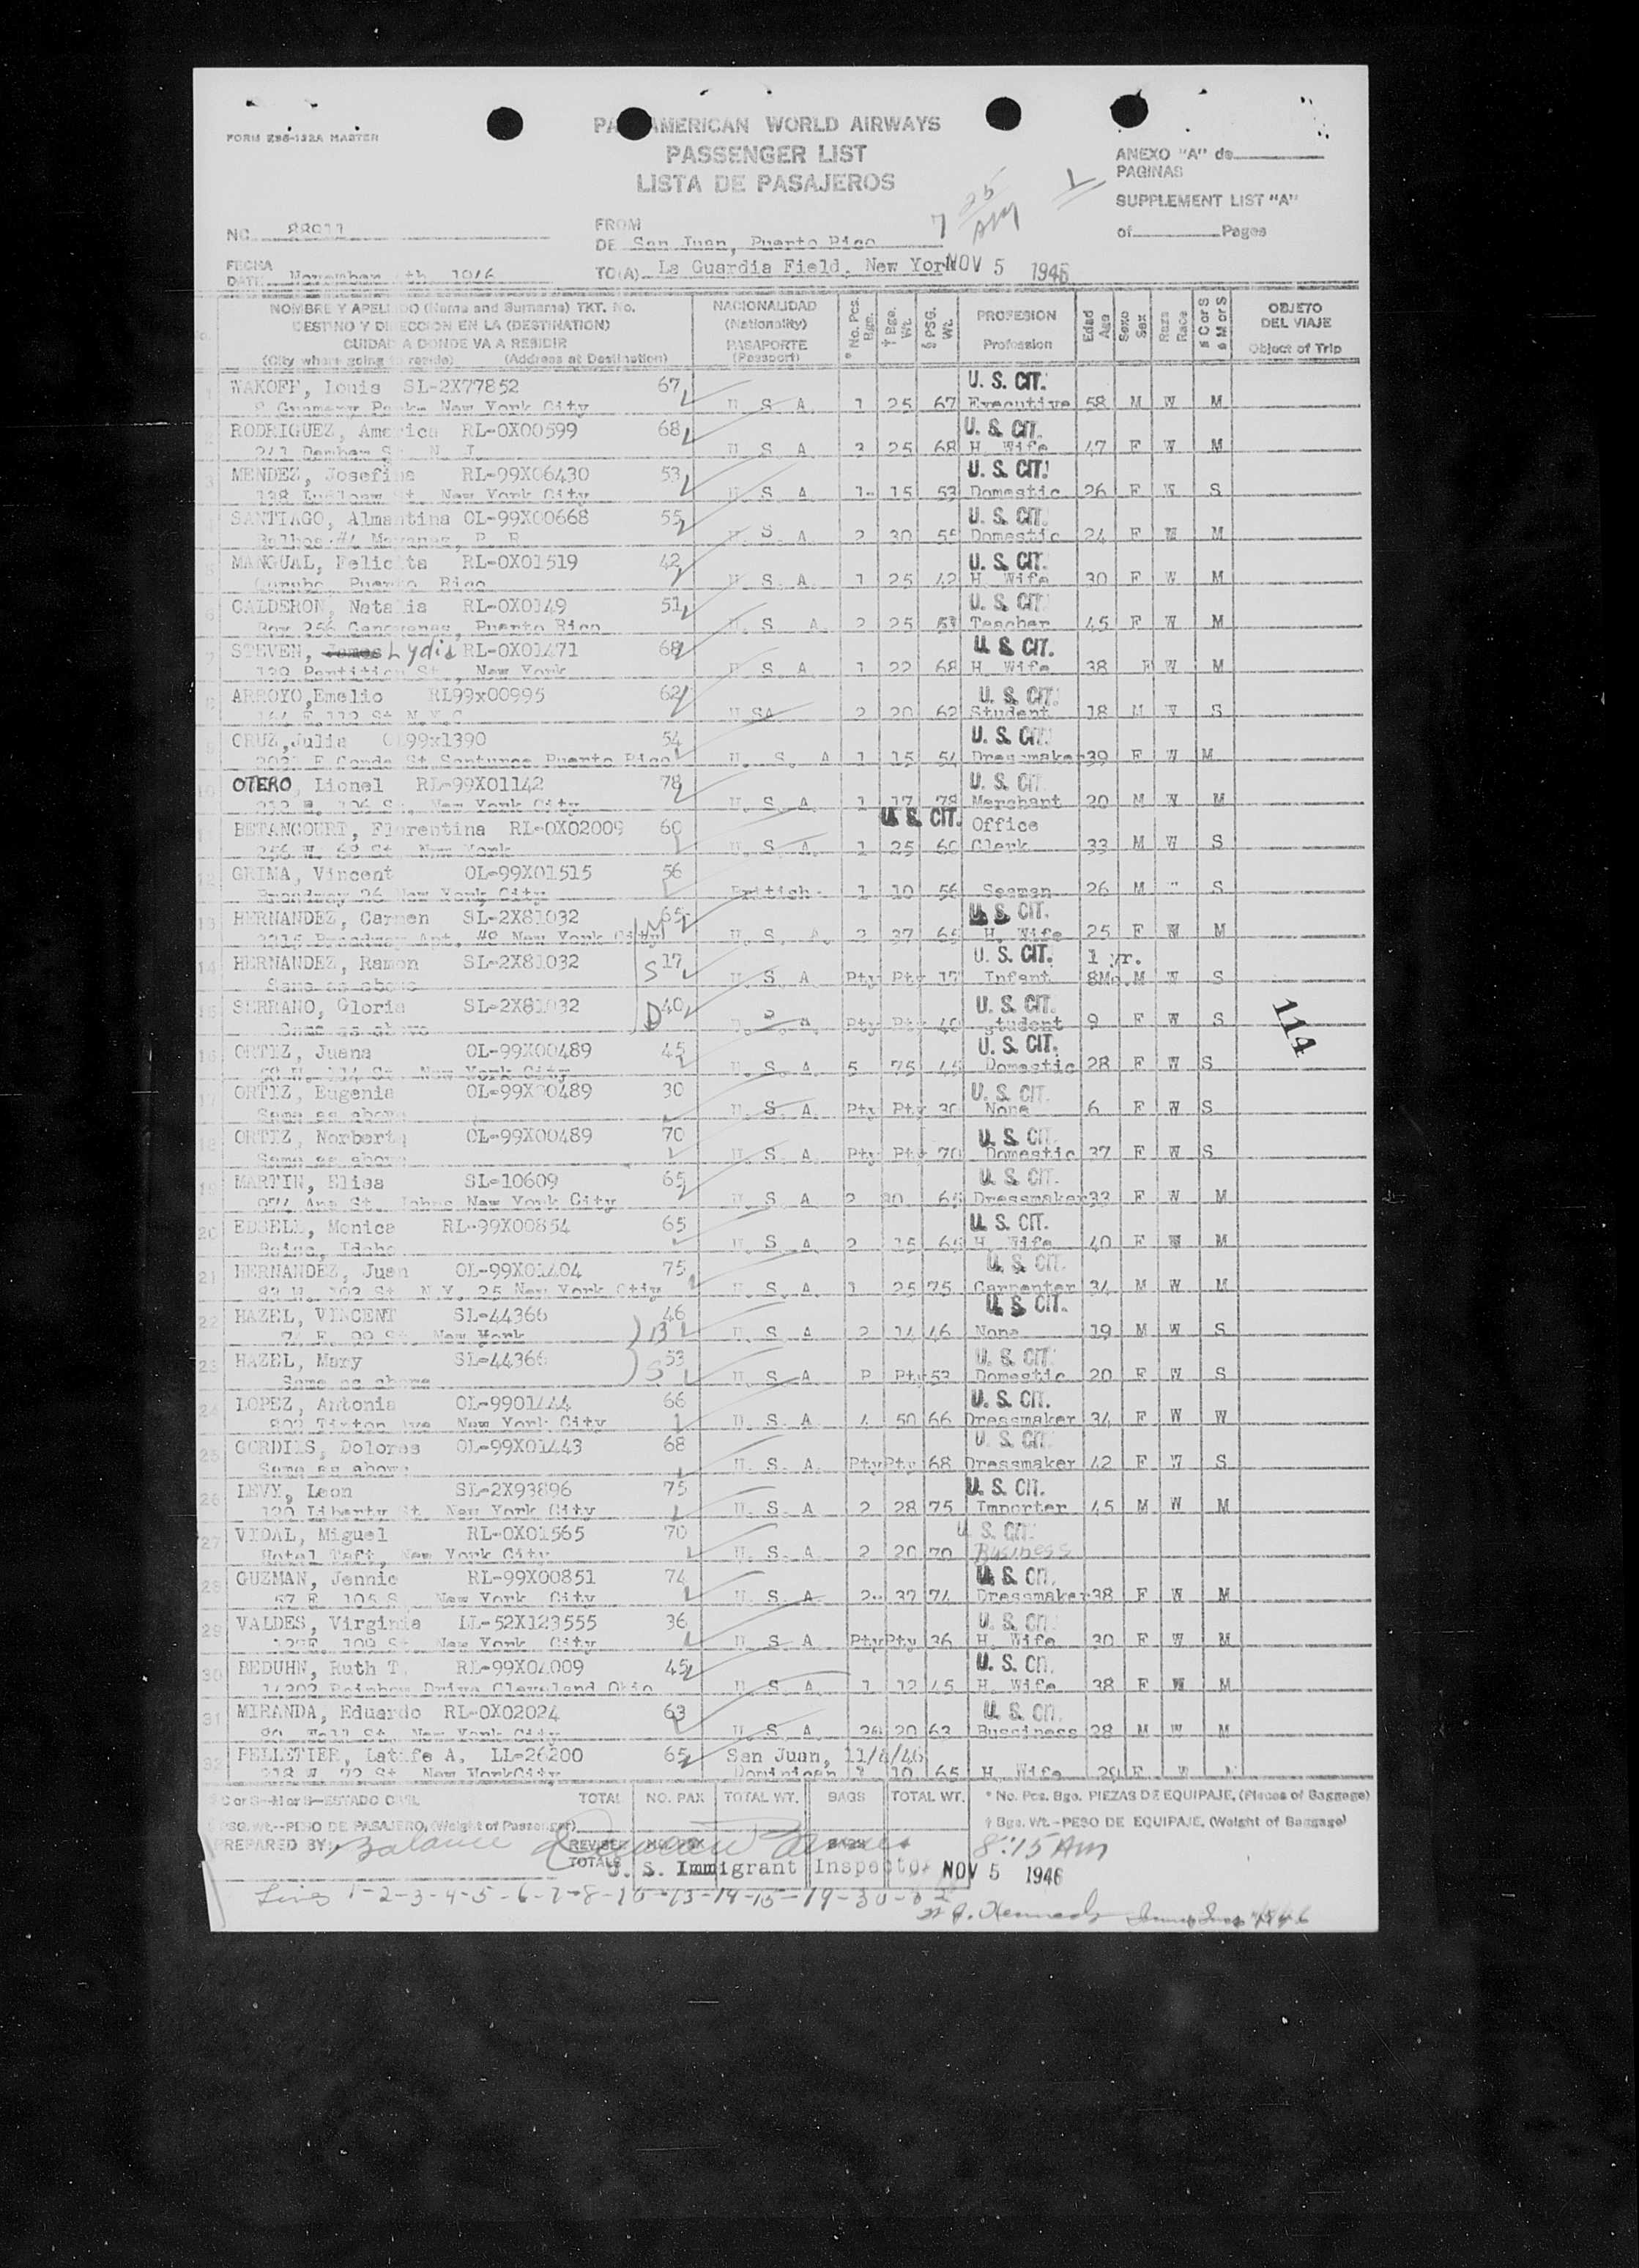 FORM ZS6-122A MASTER
PAN AMERICAN WORLD AIRWAYS
PASSENGER LIST
LISTA DE PASAJEROS
ANEXO "A" de
PAGINAS
SUPPLEMENT LIST "A"
of Pages
7 25 AM
NO. 88911
FROM
DE San Juan, Puerto Rico
FECHA
DATE November 4th 1946
TO(A) La Guardia Field, New York NOV 5 1946
NOMBRE Y APELLIDO (Name and Surname) TKT. No.
DESTINO Y DIRECCION EN LA (DESTINATION)
CUIDAD A DONDE VA A RESIDIR
(City where going to reside) (Address at Destination)
NACIONALIDAD
(Nationality)
PASAPORTE
(Passport)
* No. Pcs. Bge.
† Bge. Wt.
§ PSG. Wt.
PROFESION
Profession
Edad Age
Sexo Sex
Raza Race
C or S M or S
OBJETO
DEL VIAJE
Object of Trip
1 WAKOFF, Louis SL-2X77852 67 U. S. CIT.
New York City U S A 1 25 67 Executive 58 M W M
2 RODRIGUEZ, America RL-0X00599 68 U. S. CIT.
U S A 3 25 68 H. Wife 47 F W M
3 MENDEZ, Josefina RL-99X06430 53 U. S. CIT.
138 New York City U. S. A. 1 15 53 Domestic 26 F W S
4 SANTIAGO, Almantina OL-99X00668 55 U. S. CIT.
P. R. U. S. A. 2 30 55 Domestic 24 F W M
5 MANGUAL, Felicita RL-0X01519 42 U. S. CIT.
Puerto Rico U. S. A. 1 25 42 H. Wife 30 F W M
6 CALDERON, Natalia RL-0X0149 51 U. S. CIT.
Box 256 Canovanas, Puerto Rico U. S. A. 2 25 51 Teacher 45 F W M
7 STEVEN, James Lydia RL-0X01471 68 U. S. CIT.
New York U S A 1 22 68 H. Wife 38 F W M
8 ARROYO,Emelio RL99x00995 62 U. S. CIT.
N.Y.C U SA 2 20 62 Student 18 M W S
9 CRUZ,Julia OL99x1390 54 U. S. CIT.
Santurce Puerto Rico U. S. A 1 15 54 Dressmaker 39 F W M
10 OTERO, Lionel RL-99X01142 78 U. S. CIT.
New York City U. S. A 1 17 78 Merchant 20 M W M
11 BETANCOURT, Florentina RL-0X02009 60 U. S. CIT. Office
New York U. S. A. 1 25 60 Clerk 33 M W S
12 GRIMA, Vincent OL-99X01515 56
Broadway 26 New York City British 1 10 56 Seaman 26 M " S
13 HERNANDEZ, Carmen SL-2X81032 65 U. S. CIT.
Apt. #8 New York City M U. S. A. 2 37 65 H. Wife 25 F W M
14 HERNANDEZ, Ramon SL-2X81032 17 U. S. CIT. 1 yr.
Same as above S U S A Pty Pty 17 Infant 8Mo. M W S
15 SERRANO, Gloria SL-2X81032 D 40 U. S. CIT.
Same as above U. S. A. Pty Pty 40 Student 9 F W S
114
16 ORTIZ, Juana OL-99X00489 45 U. S. CIT.
New York City U. S. A. 5 75 45 Domestic 28 F W S
17 ORTIZ, Eugenia OL-99X00489 30 U. S. CIT.
Same as above U. S. A. Pty Pty 30 None 6 F W S
18 ORTIZ, Norberta OL-99X00489 70 U. S. CIT.
Same as above U. S. A. Pty Pty 70 Domestic 37 F W S
19 MARTIN, Elisa SL-10609 65 U. S. CIT.
Ann St. Johns New York City U. S. A 2 30 65 Dressmaker 33 F W M
20 EDSELL, Monica RL-99X00854 65 U. S. CIT.
Idaho U. S. A. 2 15 65 H. Wife 40 F W M
21 HERNANDEZ, Juan OL-99X01404 75 U. S. CIT.
N.Y. 25 New York Ctiy U. S. A. 1 25 75 Carpenter 34 M W M
22 HAZEL, VINCENT SL-44366 46 U. S. CIT.
New York B U. S. A 2 14 46 None 19 M W S
23 HAZEL, Mary SL-44366 53 U. S. CIT.
Same as above S U. S. A P Pty 53 Domestic 20 F W S
24 LOPEZ, Antonia OL-9901444 66 U. S. CIT.
802 Tinton Ave New York City U. S. A 4 50 66 Dressmaker 34 F W W
25 GORDILS, Dolores OL-99X01443 68 U. S. CIT.
Same as above U. S. A. Pty Pty 68 Dressmaker 42 F W S
26 LEVY, Leon SL-2X93896 75 U. S. CIT.
120 Liberty St. New York City U. S. A 2 28 75 Importer 45 M W M
27 VIDAL, Miguel RL-0X01565 70 U. S. CIT.
Hotel Taft, New York City U. S. A 2 20 70 Business
28 GUZMAN, Jennie RL-99X00851 74 U. S. CIT.
New York City U. S. A 2 37 74 Dressmaker 38 F W M
29 VALDES, Virginia LL-52X123555 36 U. S. CIT.
127E. 109 St. New York City U S. A Pty Pty 36 H. Wife 30 F W M
30 BEDUHN, Ruth T. RL-99X04009 45 U. S. CIT.
14302 Rainbow Drive Cleveland Ohio U S A. 1 12 45 H. Wife 38 F W M
31 MIRANDA, Eduardo RL-0X02024 63 U. S. CIT.
Wall St. New York City U. S. A 20 63 Bussiness 28 M W M
32 PELLETIER, Latife A. LL-26200 65 San Juan, 11/4/46
218 W. 72 St. New YorkCity Dominican 1 10 65 H. Wife 29 F W M
C or S—M or S—ESTADO CIVIL TOTAL NO. PAX TOTAL WT. BAGS TOTAL WT. * No. Pcs. Bge. PIEZAS DE EQUIPAJE, (Pieces of Baggage)
PSG. Wt.--PESO DE PASAJERO, (Weight of Passenger) † Bge. Wt.-PESO DE EQUIPAJE, (Weight of Baggage)
PREPARED BY: Balance REVISED TOTALS NO. PAX BAGS 8:15 AM
U. S. Immigrant Inspector NOV 5 1946
Lines 1-2-3-4-5-6-7-8-10-13-14-15-19-30-32
Kennedy